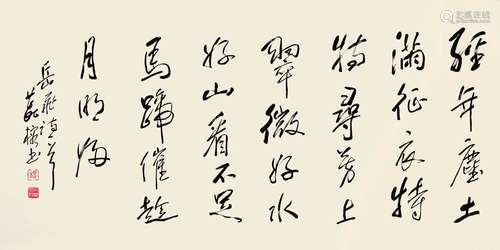 經年塵土
滿征衣特
特尋芳上
翠微好水
好山看不足
馬蹄催趁
月明歸
岳飛詩一首
書